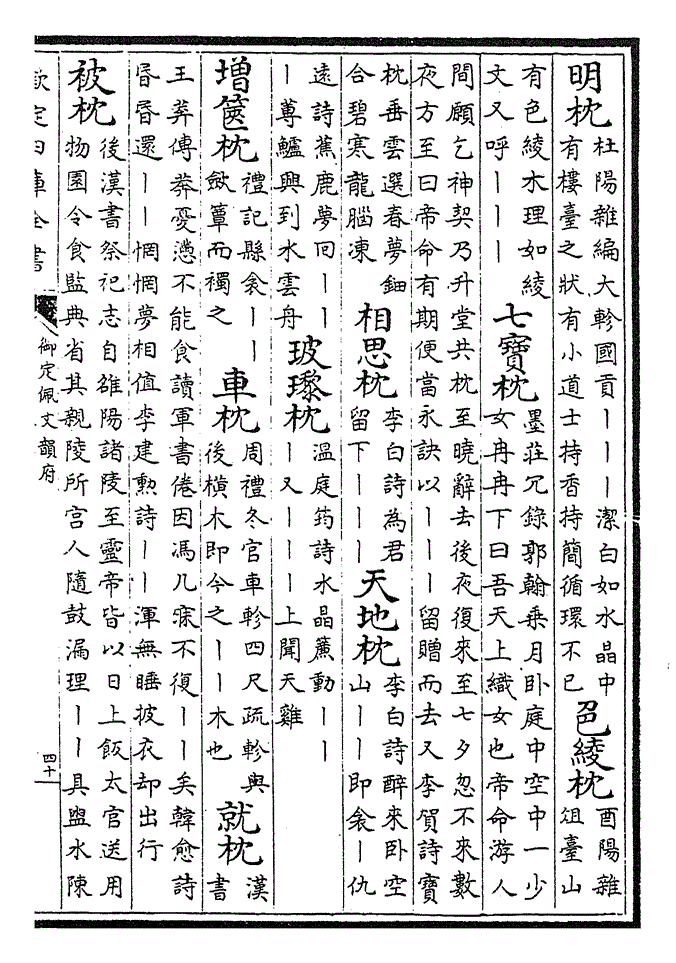 明枕
杜陽雜編大軫國貢丨丨丨潔白如水晶中
有樓臺之狀有小道士持香持簡循環不已
色綾枕
酉陽雜
俎臺山
有色綾木理如綾
文又呼丨丨丨
七寶枕
墨莊冗錄郭翰乗月卧庭中空中一少
女冉冉下曰吾天上織女也帝命游人
間願乞神契乃升堂共枕至曉辭去後夜復來至七夕忽不來數
夜方至曰帝命有期便當永訣以丨丨丨留贈而去又李賀詩寶
枕垂雲選春夢鈿
合碧寒龍腦凍
相思枕
李白詩為君
留下丨丨丨
天地枕
李白詩醉來卧空
山丨丨即衾丨仇
遠詩蕉鹿夢回丨丨
丨尊鱸興到水雲舟
玻瓈枕
温庭筠詩水晶簾動丨丨
丨又丨丨丨上聞天雞
増篋枕
禮記縣衾丨丨
斂簟而襡之
車枕
周禮冬官車軫四尺疏軫與
後橫木即今之丨丨木也
就枕
漢
書
王莽傳莽憂懣不能食讀軍書倦因馮几寐不復丨丨矣韓愈詩
昏昏還丨丨惘惘夢相值李建勲詩丨丨渾無睡披衣却出行
被枕
後漢書祭祀志自雒陽諸陵至靈帝皆以日上飯太官送用
物園令食監典省其親陵所宫人隨鼓漏理丨丨具盥水陳
欽定四庫全書
御定佩文韻府
四十